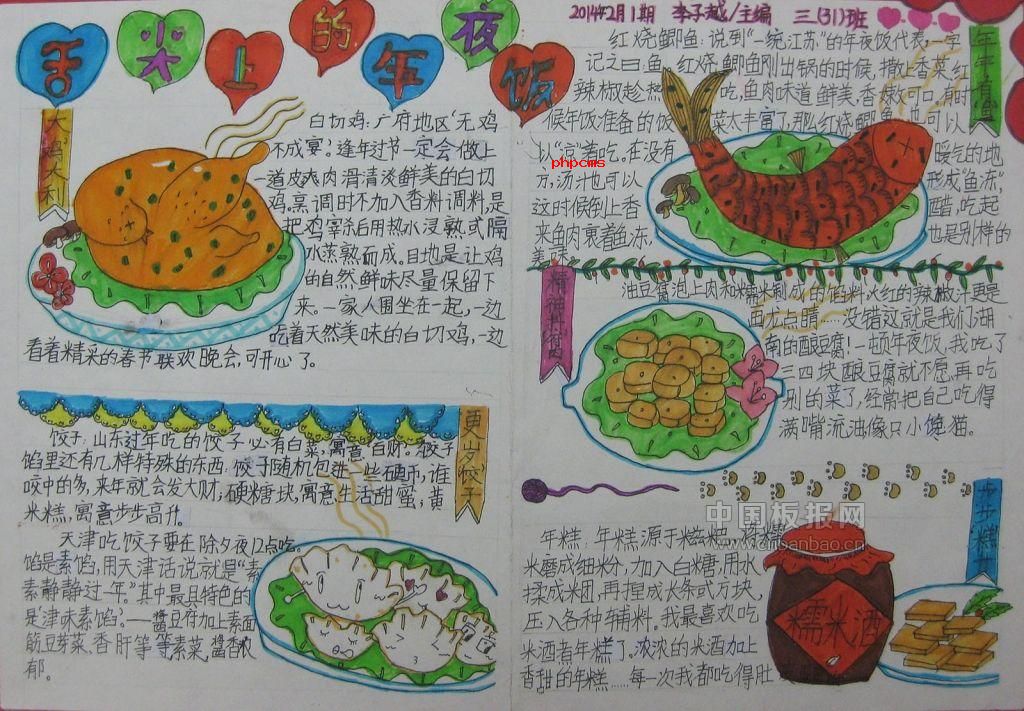 舌尖上的年夜饭
2014年2月1期 李子越/主编 三(31)班
大"鸡"大利
白切鸡:广府地区"无鸡
不成宴"。逢年过节一定会做上
一道皮爽肉滑清淡鲜美的白切
鸡。烹调时不加入香料调料,是
把鸡宰杀后用热水浸熟或隔
水蒸熟而成。目地是让鸡
的自然鲜味尽量保留下
来。一家人围坐在一起,一边
吃着天然美味的白切鸡,一边
看着精采的春节联欢晚会,可开心了。
更岁(饺)子
饺子:山东过年吃的饺子必有白菜,寓意百财。包饺子
馅里还有几样特殊的东西:饺子随机包进一些硬币,谁
咬中的多,来年就会发大财;硬糖块,寓意生活甜蜜;黄
米糕,寓意步步高升。
天津吃饺子要在除夕夜12点吃。
馅是素馅,用天津话说就是"素
素静静过一年。"其中最具特色的
是津味素馅。——酱豆腐加上素面
筋豆芽菜、香干等等素菜,酱香浓
郁。
年年有鱼
红烧鲫鱼:说到"一统江苏"的年夜饭代表,一字
记之曰:鱼。红烧鲫鱼刚出锅的时候,撒上香菜、红
辣椒趁热吃,鱼肉味道鲜美,香嫩可口,有时
候年饭准备的饭菜太丰富了,那么红烧鲫鱼也可以
以"凉"着吃。在没有暖气的地
方,汤汁也可以形成"鱼冻",
这时候倒上香醋,吃起
来鱼肉裹着鱼冻,也是别样的
美味。
phpcms
油豆腐泡上肉和糯米制成的馅料,火红的辣椒汁更是
画龙点睛……没错这就是我们湖
南的酿豆腐!一顿年夜饭,我吃了
三四块酿豆腐就不愿再吃
别的菜了,经常把自己吃得
满嘴流油,像只小馋猫。
中国板报网
www.chsanbao.cn
步步糕升
年糕:年糕源于糍粑。将糯
米磨成细粉,加入白糖,用水
揉成米团,再捏成长条或方块,
压入各种辅料。我最喜欢吃
米酒煮年糕了。浓浓的米酒加上
香甜的年糕……每一次我都吃得肚
糯米酒